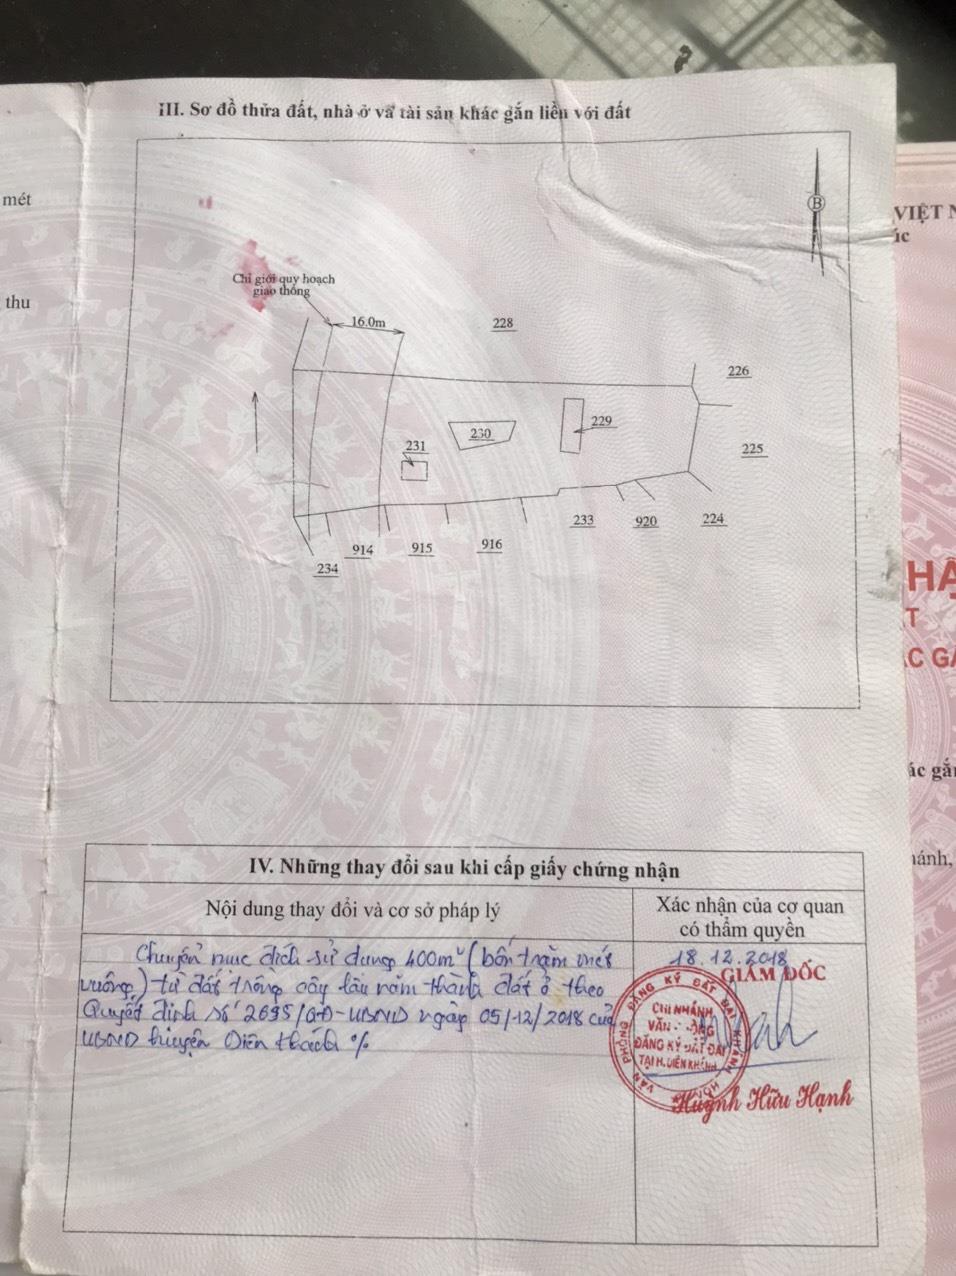 III. Sơ đồ thửa đất, nhà ở và tài sản khác gắn liền với đất
mét
thu
B
Chỉ giới quy hoạch
giao thông
16.0m
228
226
229
230
231
225
233
920
224
916
915
914
234
VIỆT N
úc
HẬ
T
ÁC GẮ
ác gắn
hánh,
IV. Những thay đổi sau khi cấp giấy chứng nhận
Nội dung thay đổi và cơ sở pháp lý
Xác nhận của cơ quan
có thẩm quyền
Chuyển mục đích sử dụng 400m² (bốn trăm mét
vuông) từ đất trồng cây lâu năm thành đất ở theo
Quyết định số 2695/QĐ-UBND ngày 05/12/2018 của
UBND huyện Diên Khánh %
18.12.2018
GIÁM ĐỐC
VĂN PHÒNG ĐĂNG KÝ ĐẤT ĐAI KHÁNH HÒA
CHI NHÁNH
VĂN PHÒNG
ĐĂNG KÝ ĐẤT ĐAI
TẠI H.DIÊN KHÁNH
Huỳnh Hữu Hạnh